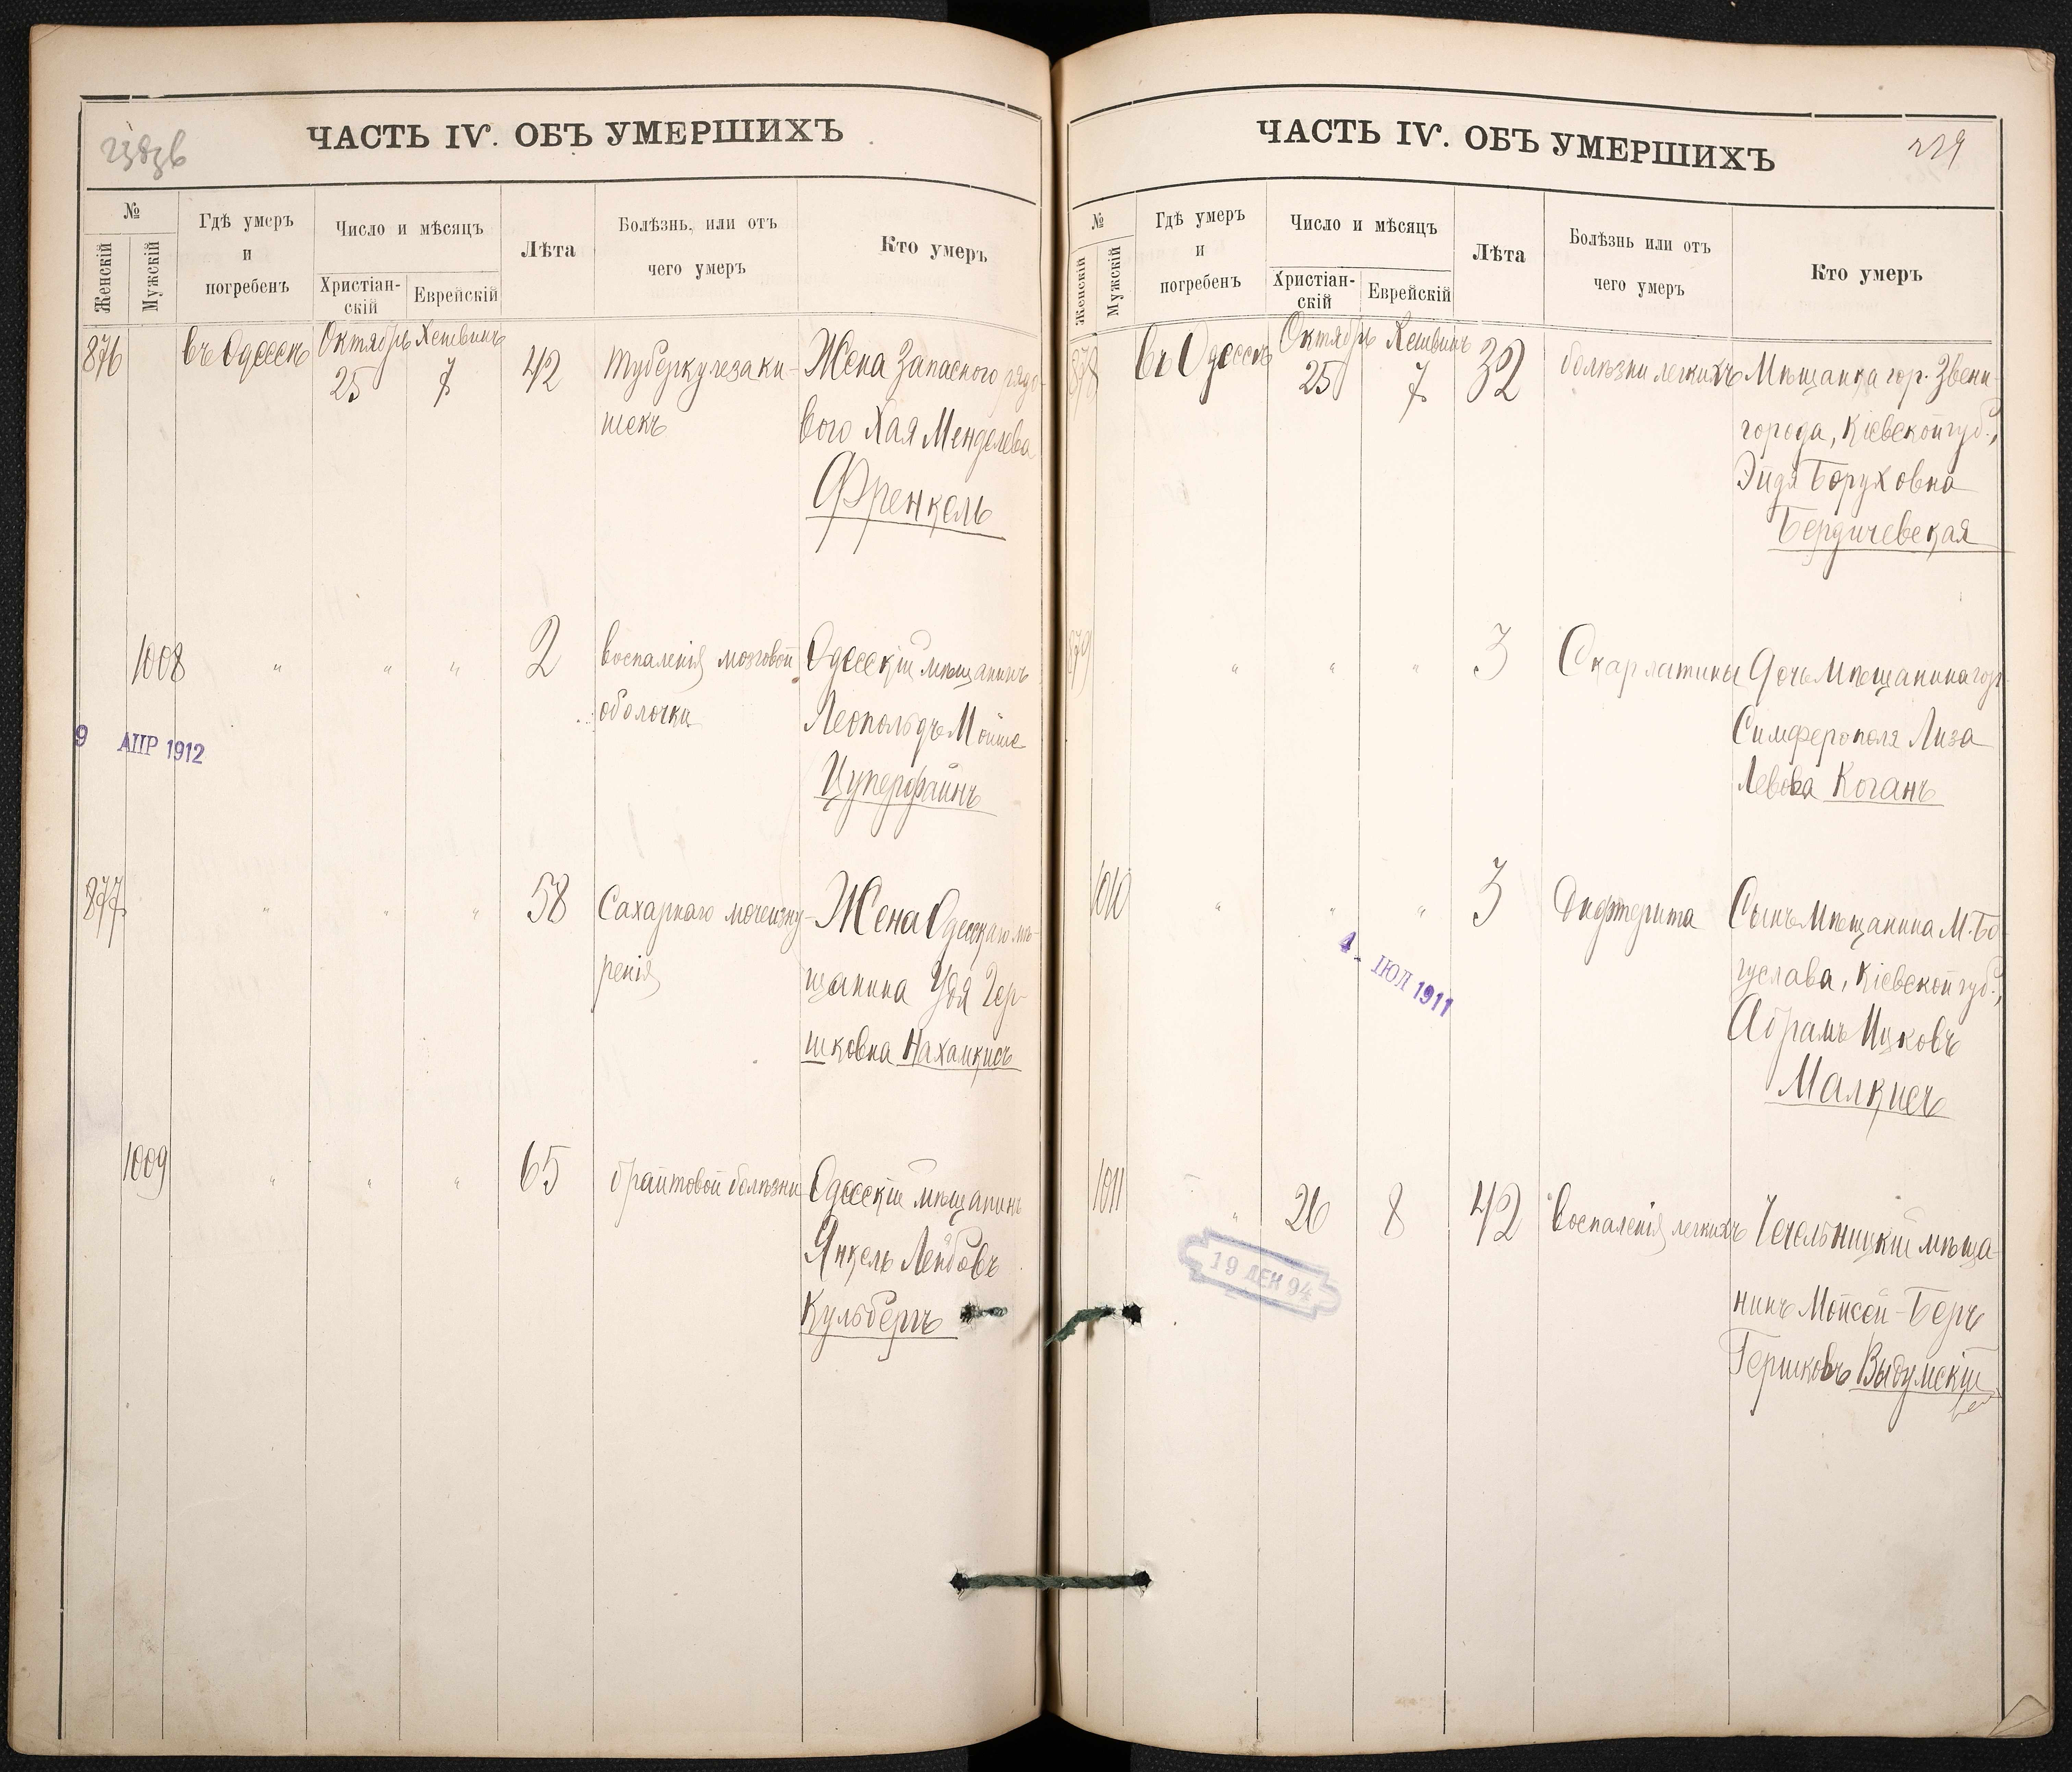 ЧАСТЬ IV. ОБЪ УМЕРШИХЪ
№
Женскій
Мужскій
Гдѣ умеръ
и
погребенъ
Число и мѣсяцъ
Христіан-
скій
Еврейскій
Лѣта
Болѣзнь, или отъ
чего умеръ
Кто умеръ
876
въ Одессѣ
Октябрь
25
Хешвинъ
7
42
Туберкулеза ки-
шекъ
Жена Запасного рядо-
вого Хая Менделева
Френкель
1008
"
"
"
2
Воспаленія мозговой
оболочки
Одесскій мѣщанинъ
Леопольдъ Мойше
Цуперфайнъ
9 АПР 1912
877
"
"
"
58
Сахарнаго мочеизну-
ренія
Жена Одесскаго мѣ-
щанина Удя Гер-
шковна Нахамкисъ
1009
"
"
"
65
брайтовой болѣзни
Одесскій мѣщанинъ
Янкель Лейбовъ
Кульбергъ
ЧАСТЬ IV. ОБЪ УМЕРШИХЪ
229
№
Женскій
Мужскій
Гдѣ умеръ
и
погребенъ
Число и мѣсяцъ
Христіан-
скій
Еврейскій
Лѣта
Болѣзнь или отъ
чего умеръ
Кто умеръ
878
въ Одессѣ
Октябрь
25
Хешвинъ
7
32
болѣзни легкихъ
Мѣщанка гор. Звени-
города, Кіевской губ.,
Эйдя Боруховна
Бердичевская
879
"
"
"
3
Скарлатины
Дочь Мѣщанина гор.
Симферополя Лиза
Левова Коганъ
1010
"
"
"
3
Дифтерита
Сынъ Мѣщанина М. Бо-
гуслава, Кіевской губ.,
Абрамъ Ицковъ
Малкисъ
4 - ІЮЛ 1911
1011
"
26
8
42
Воспаленія легкихъ
Чечельницкій мѣща-
нинъ Мойсей-Беръ
Гершковъ Выдумскій
19 ДЕК 94